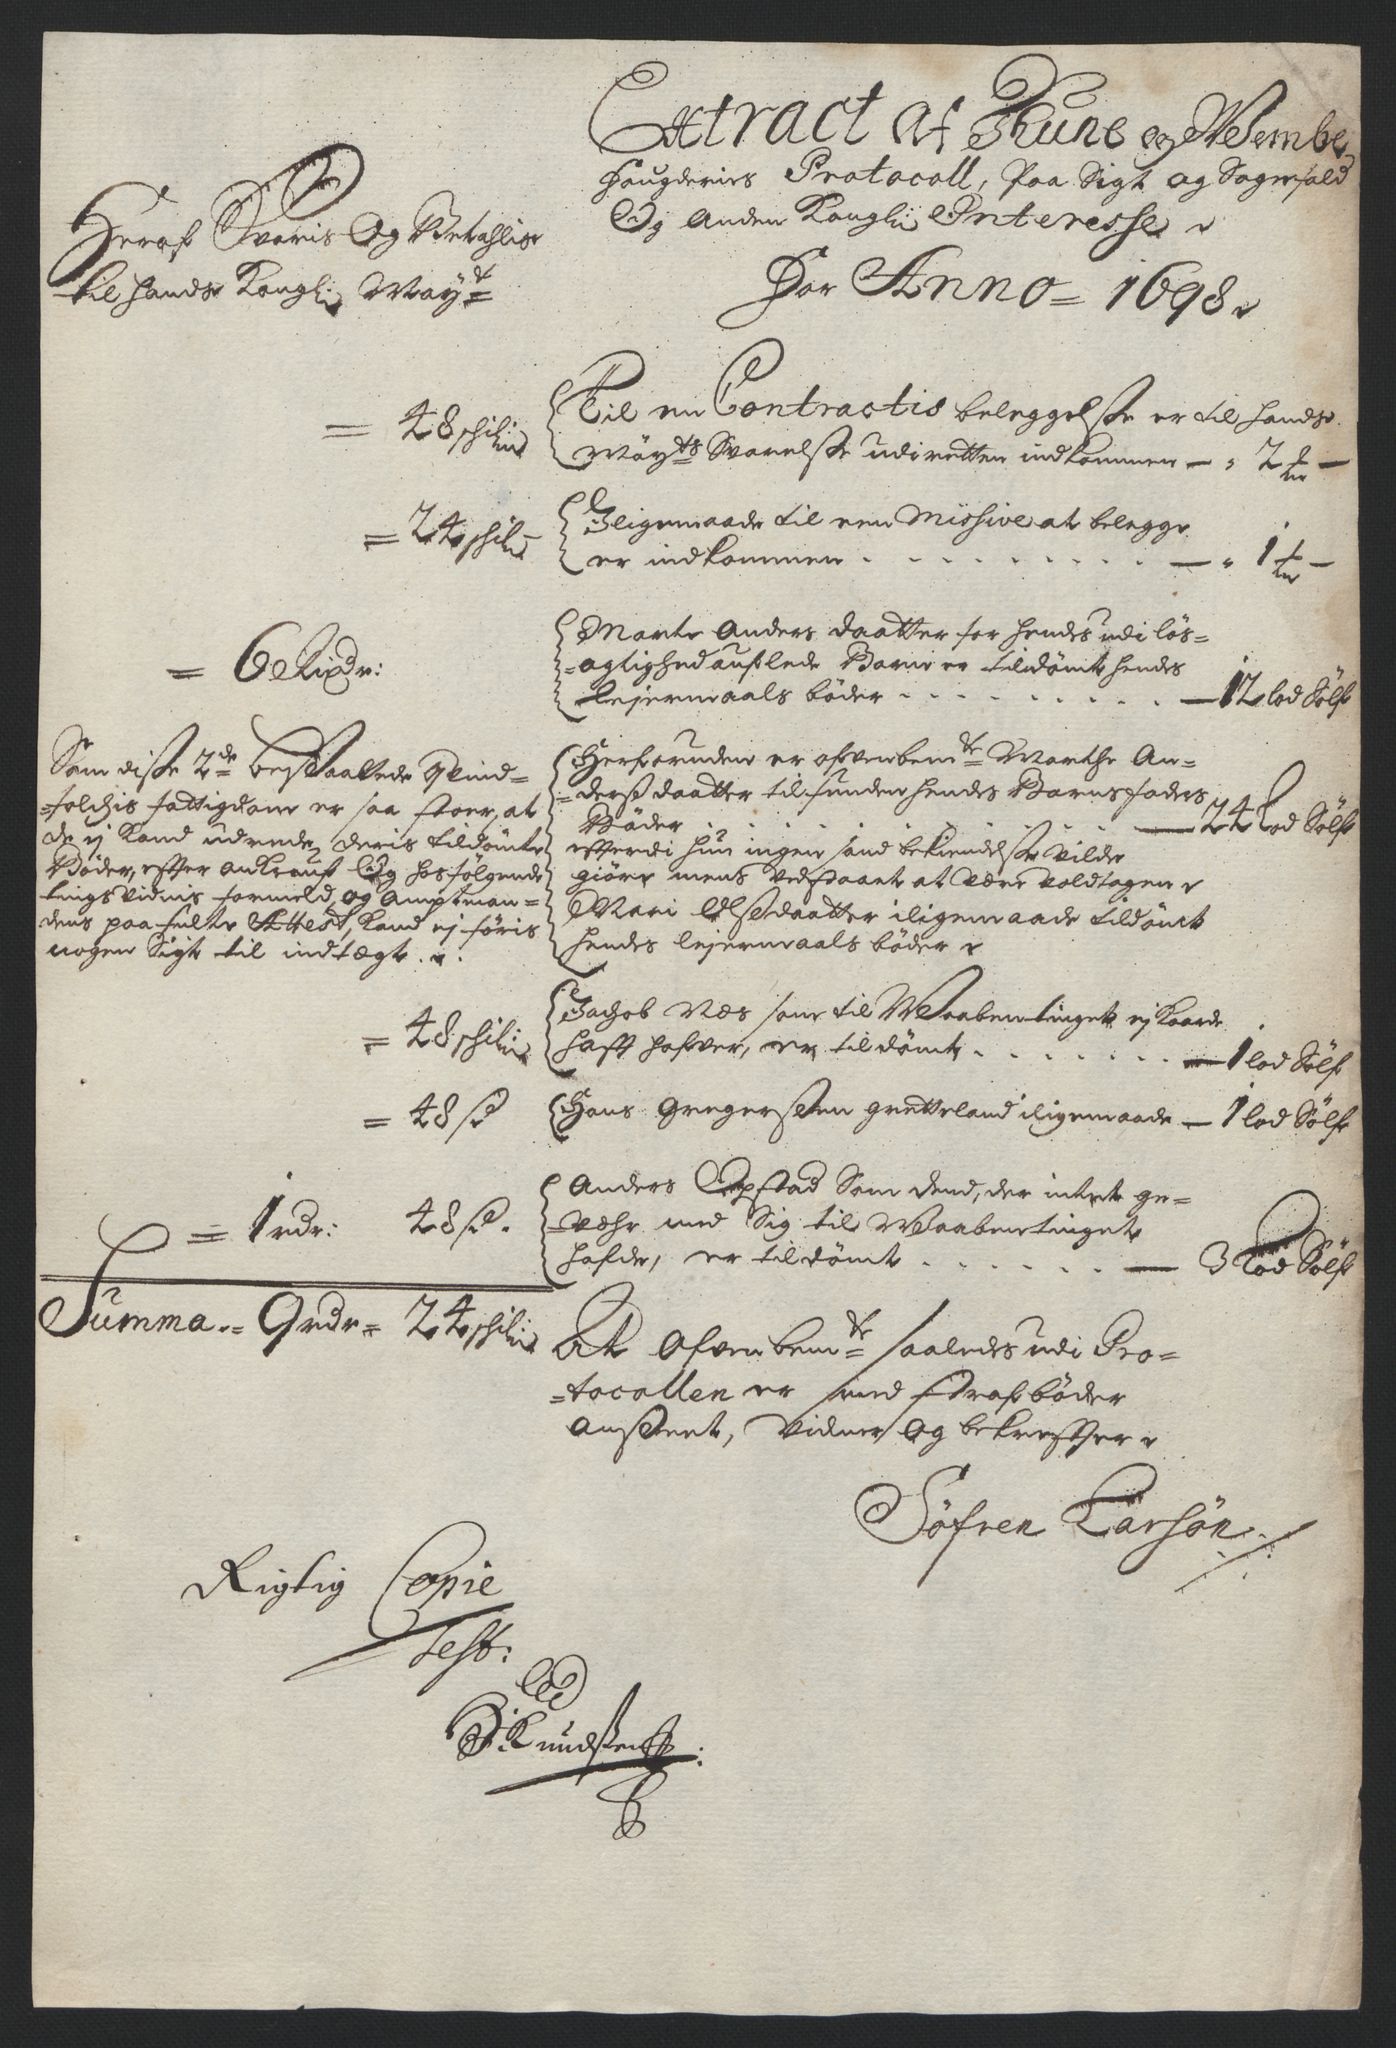 Extract af Thune og Wembe
Fougderies Protocoll, Paa Sigt og Sagerfald
Og Anden Kongl: Interesse
For Anno = 1698
Heraf Svaris Og Betahlis
til hands Kongl: May:t
= 48 schil:
Til en Contractis beleggelsse er til hands
Mäy:ts Svarelsse udi retten indkommen — 2
= 24 schil:
Iligemaade til een Missive at belegge
er indkommen . . . . . . . . . — 1
= 6 Rixdr:
Marte Anders daatter for hendes udi løs-
-agtighed auflede Barn er tildömt hendes
leyermaals böder . . . . . . . — 12 lod Sölf
Som disse 2de bestaaltede Qvind-
-folchis fattigdom er saa stoer, at
de ej kand udrede deris tildömte
Böder, effter Og hosfölgende
tings vidnis formeld, og Amptman-
dens paafulte Attest, kand ej föris
nogen Sigt til indtægt.
Herforuden er ofvenbem:te Marthe An-
-derss daatter tilfunden hendes Barnsfaders
Böder . . . . . . . — 24 Lod Sölf
efterdi hun ingen sand bekiendelsse vilde
giöre mens vedstaaet at være voldtagen
Mari Olssdaatter iligemaade tildömt
hendes leyermaals böder
= 48 schil:
Jachob Næs som til Waabentinget ej kaarde
hafft hafver, er tildömt . . . . . . — 1 lod Sölf
= 48 ß
Hans Gregerssen Gretteland iligemaade — 1 lod Sölf
= 1 rdr: 48 ß.
Anders Opstad Som dend, der intet ge-
-væhr med Sig til Waabentinget
hafde, er tildömt . . . . . . — 3 Lod Sölf
Summa = 9 rdr = 24 schil:
At Ofvenbem:te saaledes udi Pro-
-tocollen er med strafböder
ansseet, Vidner Og bekreffter
Söfren Larsön
Rigtig Copie
Test:
Knudssen